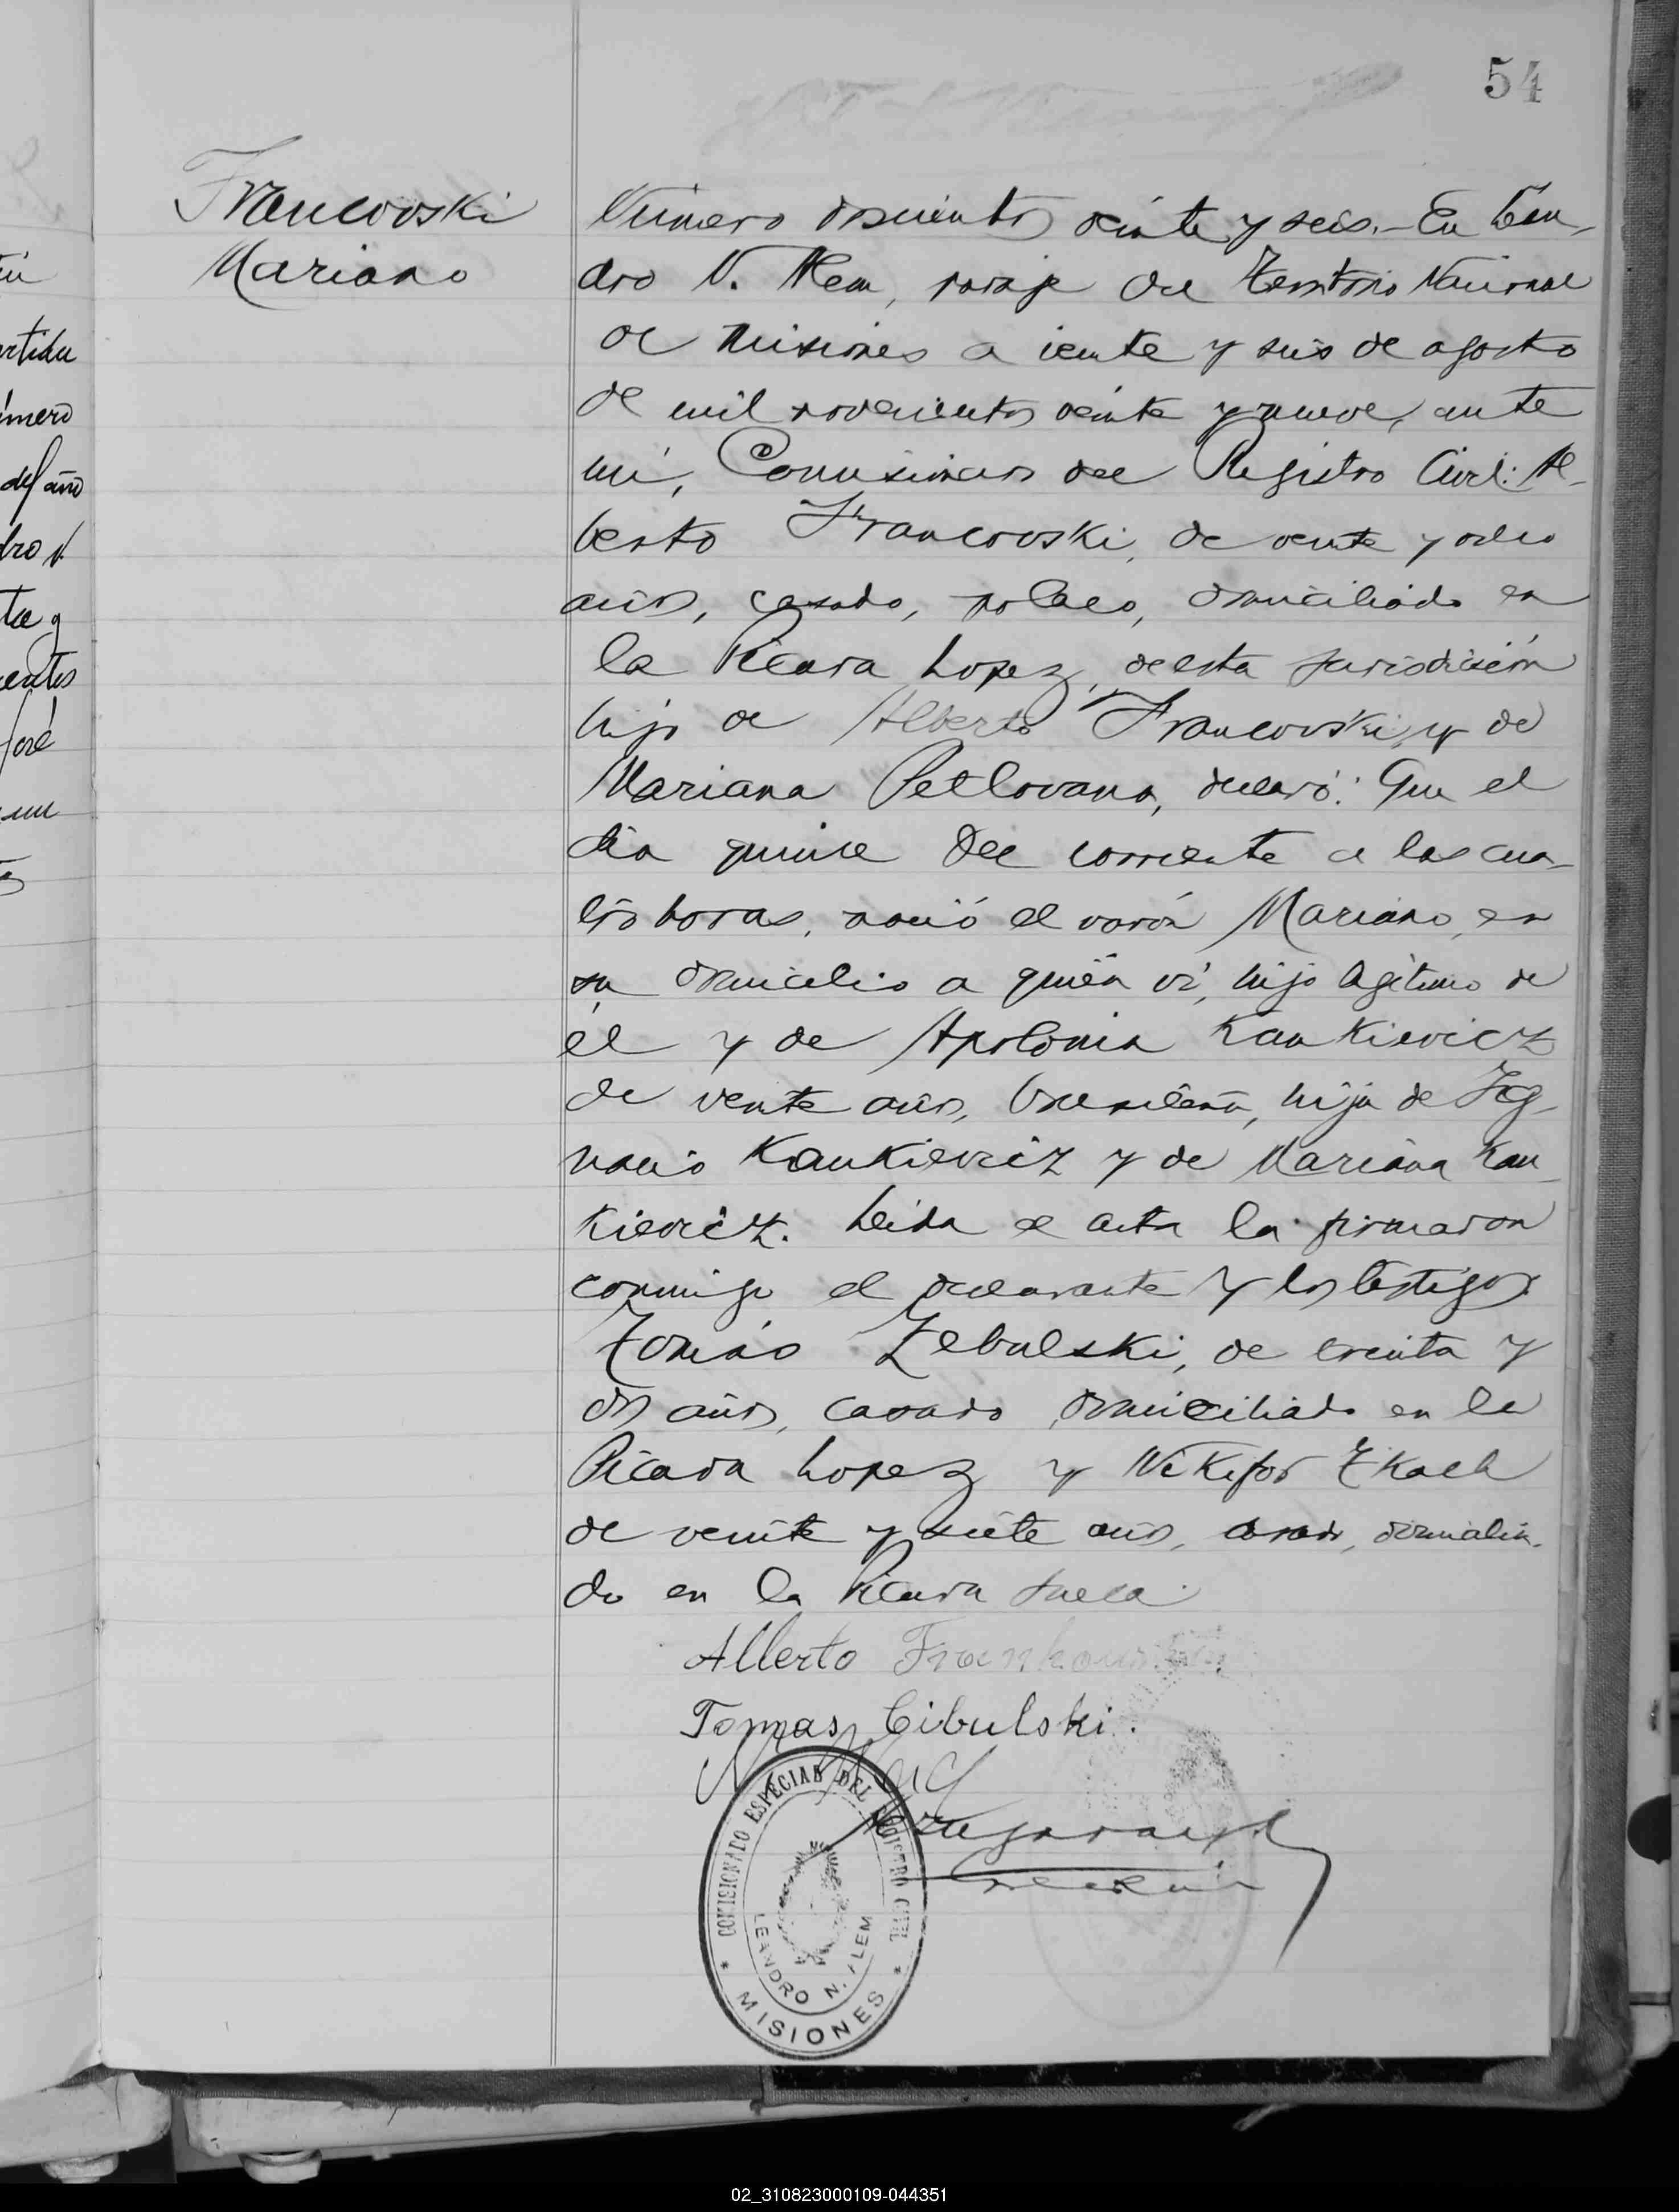 54
Francovski
Mariano
Número doscientos veinte y seis.- En Lean-
dro N. Alem, paraje del Territorio Nacional
de Misiones a veinte y seis de agosto
de mil novecientos veinte y nueve, ante
mí, Comisionado del Registro Civil: Al-
berto Francovski, de veinte y ocho
años, casado, polaco, domiciliado en
la Picada Lopez, de esta jurisdicción
hijo de Alberto Francovski, y de
Mariana Petlovana, declaró: Que el
día quince del corriente a las cua-
tro horas, nació el varón Mariano, en
su domicilio a quién ví, hijo legítimo de
él y de Apolonia Kankievicz
de veinte años, brasileña, hija de Ig-
nacio Kankievicz y de Mariana Kan-
kievicz. Leida el acta la firmaron
conmigo el declarante y los testigos
Tomás Zebulski, de treinta y
dos años, casado domiciliado en la
Picada Lopez y Nikifor Tkach
de veinte y siete años, casado, domicilia-
do en la Picada Sueca.
Alberto Frankowski
Tomas Cibulski.
COMISIONADO ESPECIAL DEL REGISTRO CIVIL
LEANDRO N. ALEM
* MISIONES *
rtidu
úmero
del año
dro N.
ta y
entos
José
un
02_310823000109-044351